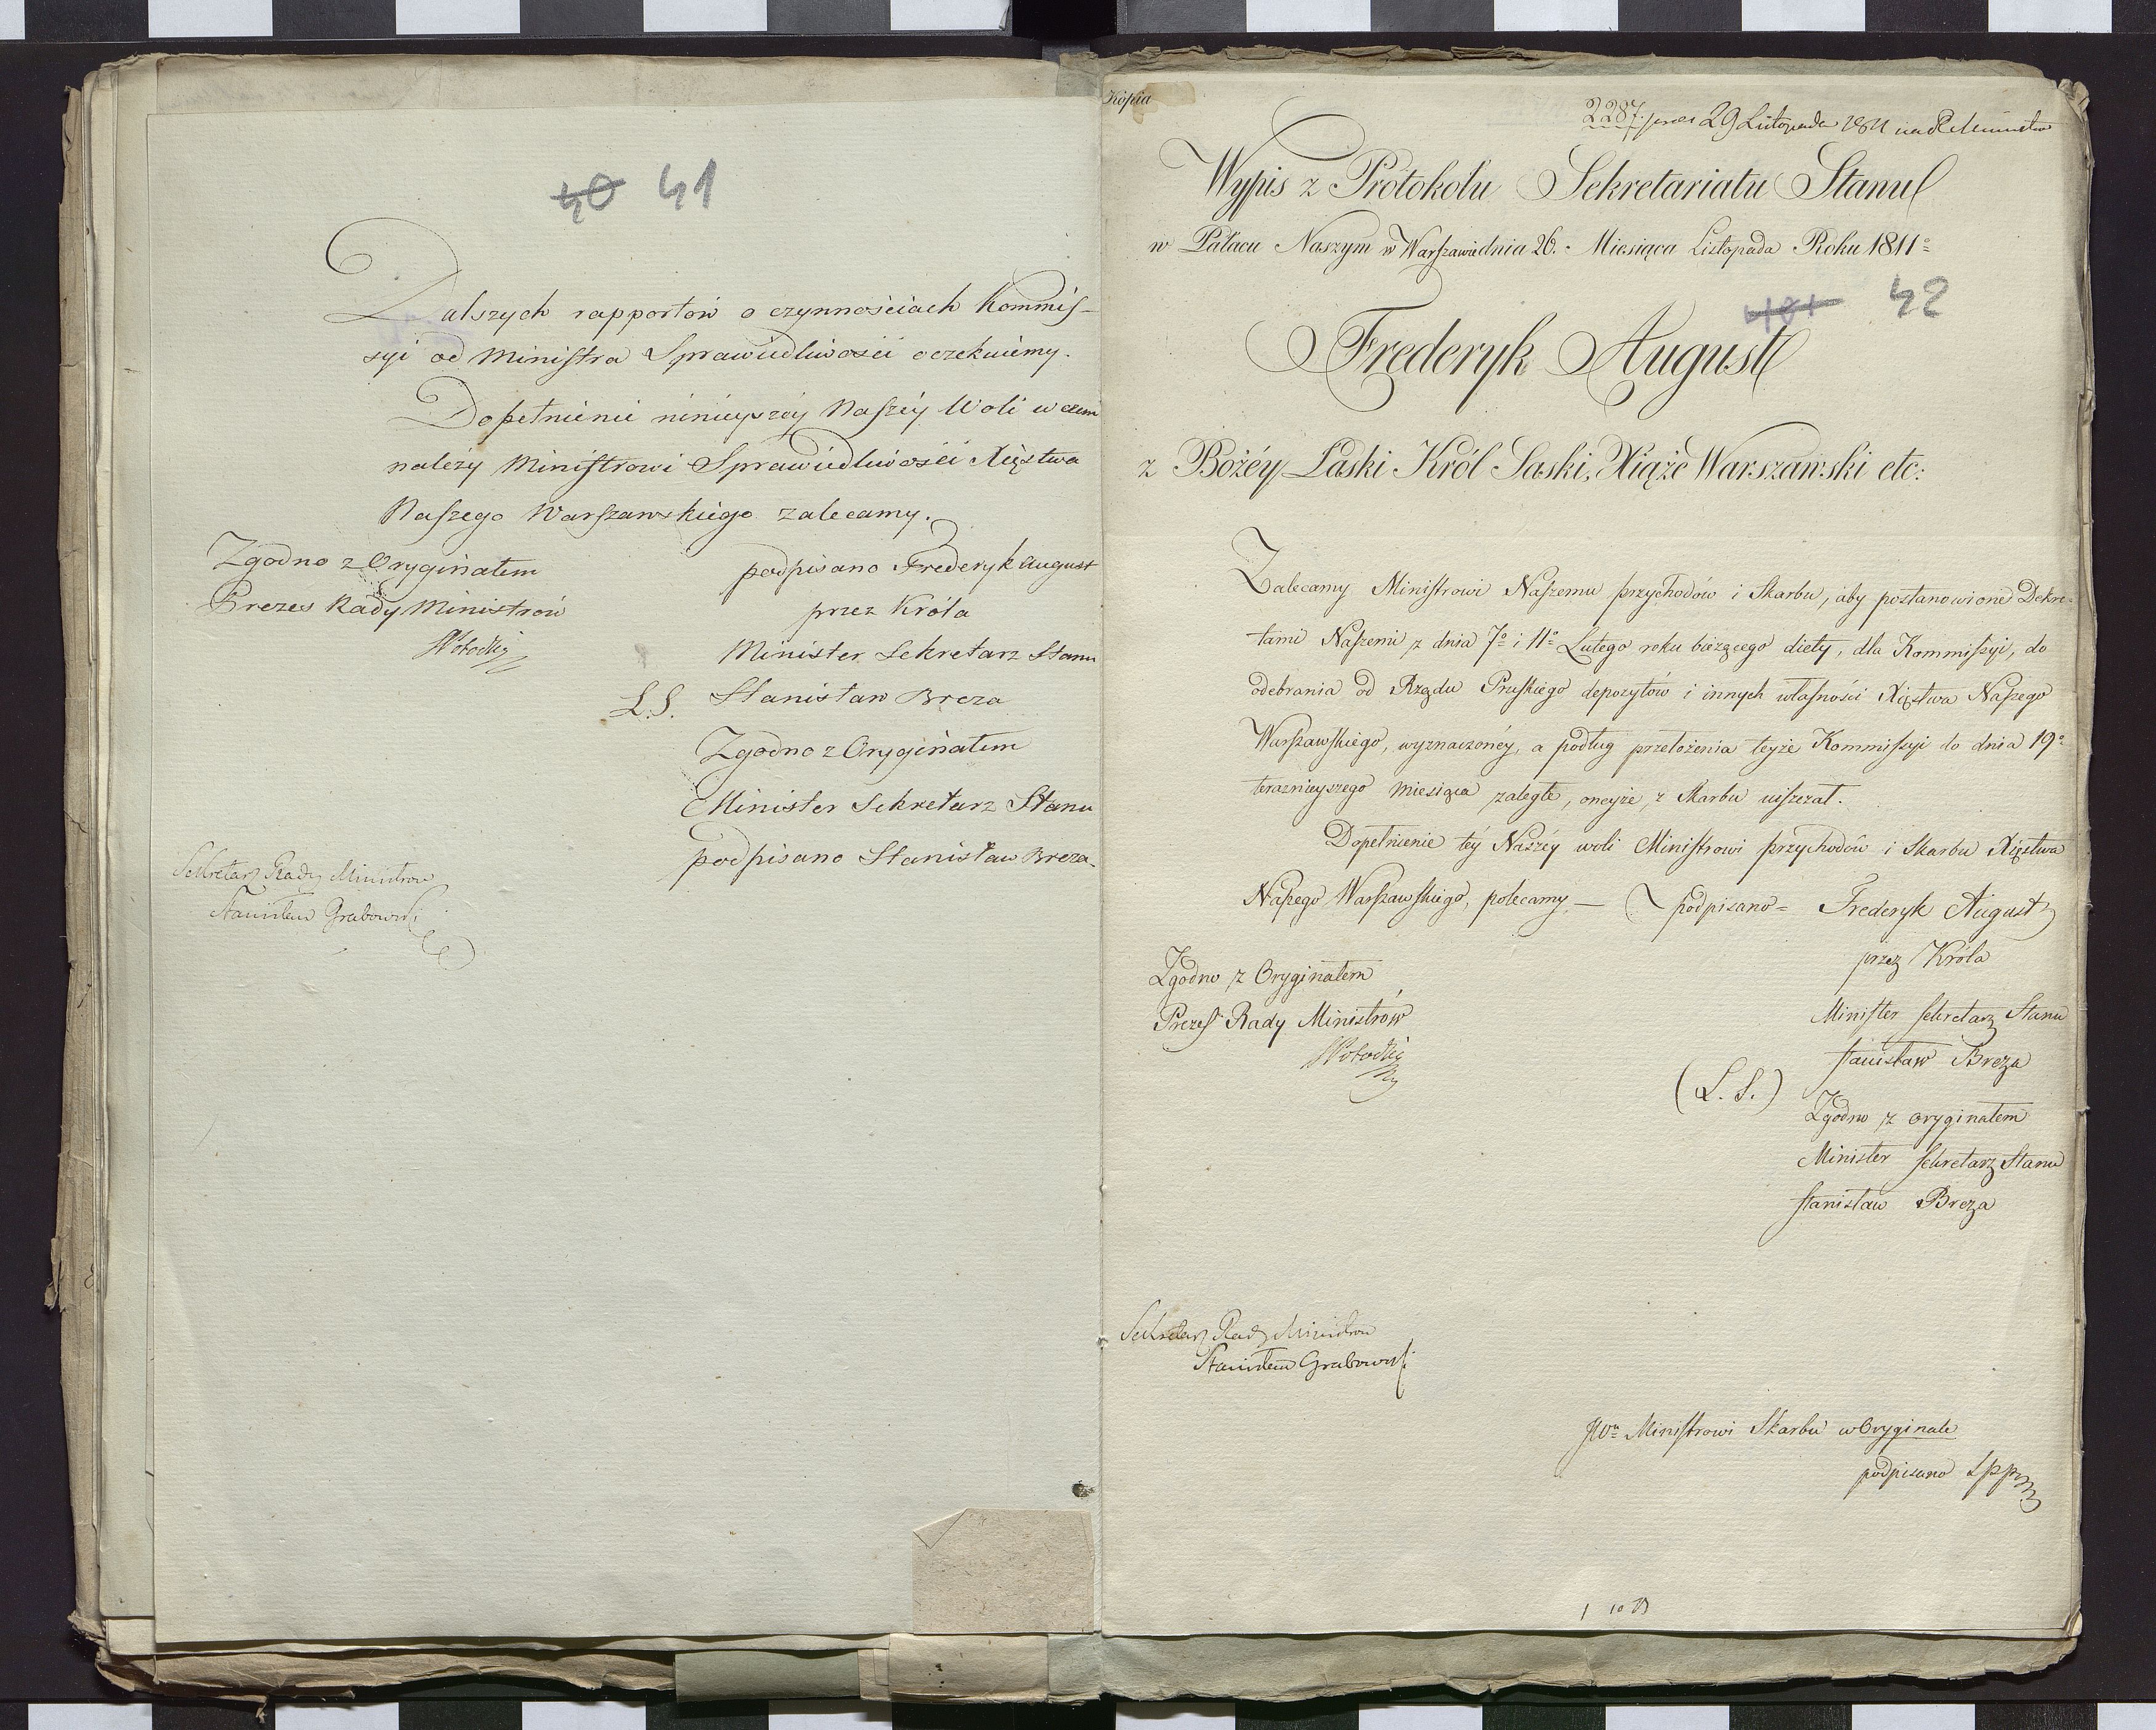 40 41
Dalszych rapportów o czynnościach Kommis-
syi od Ministra Sprawiedliwości oczekuiemy.
Dopełnienie ninieyszéy Naszéy Woli w czem
należy Ministrowi Sprawiedliwości Xięstwa
Naszego Warszawskiego zalecamy.
Zgodno z Oryginałem
Prezes Rady Ministrów
podpisano Frederyk August
przez Króla
Minister Sekretarz Stanu
L.S. Stanisław Breza
Zgodno z Oryginałem
Minister Sekretarz Stanu
podpisano Stanisław Breza
Sekretarz Rady Ministrow
Stanisław Grabowski
Kopia
2287. 29 Listopada 1811
Wypis z Protokołu Sekretariatu Stanu
w Pałacu Naszym w Warszawie dnia 26. Miesiąca Listopada Roku 1811
42
Frederyk August
z Bożéy Łaski Król Saski, Xiąże Warszawski etc:
Zalecamy Ministrowi Naszemu przychodów i Skarbu, aby postanowione Dekre-
tami Naszemi z dnia 7º i 11º Lutego roku bieżącego diety, dla Kommissyi, do
odebrania od Rządu Pruskiego depozytów i innych własności Xięstwa Naszego
Warszawskiego, wyznaczonéy, a podług przełożenia teyże Kommissyi do dnia 19º
teraznieyszego miesiąca zaległe, oneyże z Skarbu uiszczał.
Dopełnienie téy Naszéy woli Ministrowi przychodów i Skarbu Xięstwa
Naszego Warszawskiego, polecamy — podpisano = Frederyk August
przez Króla
Minister Sekretarz Stanu
Stanisław Breza
(L. S.)
Zgodno z oryginałem
Minister Sekretarz Stanu
Stanisław Breza
Zgodno z Oryginałem
Prezes Rady Ministrów
Sekretarz Rady Ministrow
Stanisław Grabowski
JWu Ministrowi Skarbu w Oryginale
podpisano